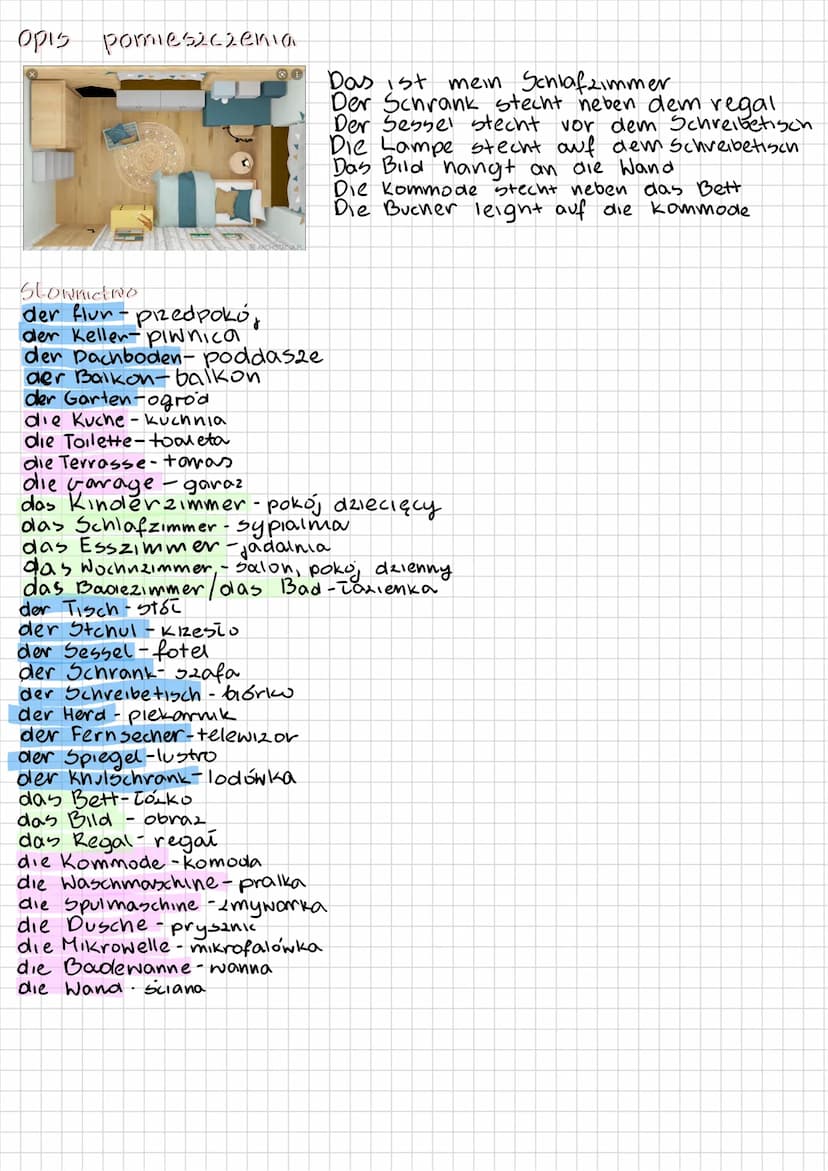 Opis pomieszczenia
Das ist mein Schlafzimmer
Der Schrank stecht neben dem regal
Der Sessel stecht vor dem Schreibetisch
Die Lampe stecht auf dem Schreibetisch
Das Bild hangt an die Wand
Die Kommode stecht neben das Bett
Die Bucher leight auf die Kommode
Słownictwo
der flur - przedpokój
der Keller - piwnica
der Dachboden - poddasze
der Balkon - balkon
der Garten - ogród
die Kuche - kuchnia
die Toilette - toaleta
die Terrasse - taras
die Garage - garaż
das Kinderzimmer - pokój dziecięcy
das Schlafzimmer - sypialnia
das Esszimmer - jadalnia
das Wochnzimmer - salon, pokój dzienny
das Badezimmer/das Bad - łazienka
der Tisch - stół
der Stchul - krzesło
der Sessel - fotel
der Schrank - szafa
der Schreibetisch - biórko
der Herd - piekarnik
der Fernsecher - telewizor
der Spiegel - lustro
der Khulschrank - lodówka
das Bett - łóżko
das Bild - obraz
das Regal - regał
die Kommode - komoda
die Waschmaschine - pralka
die Spulmaschine - zmywarka
die Dusche - prysznic
die Mikrowelle - mikrofalówka
die Badewanne - wanna
die Wand - ściana